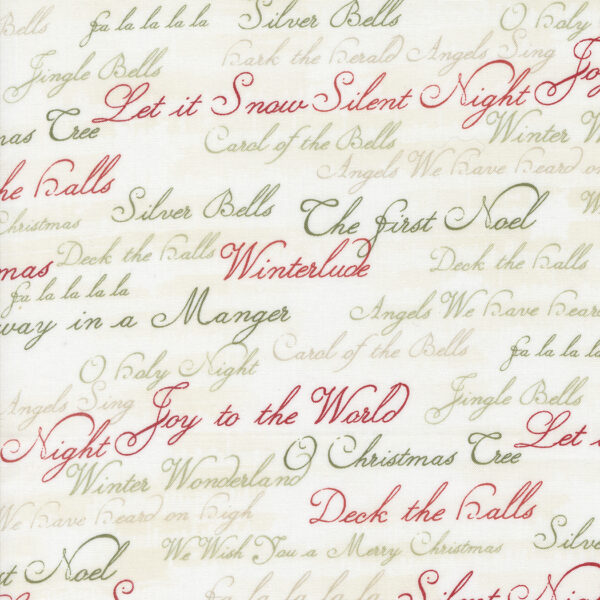 Bells fa la la la la Silver Bells O Holy
Hark the Herald Angels Sing
Jingle Bells Joy
Let it Snow Silent Night
mas Tree Carol of the Bells Winter W
Angels We Have Heard on
the Halls
Silver Bells The First Noel
Christmas
mas Deck the Halls Winterlude Deck the Halls
fa la la la la
way in a Manger Angels We Have Heard
Carol of the Bells fa la la la l
O Holy Night
Angels Sing Joy to the World Jingle Bells
Night O Christmas Tree Let i
Winter Wonderland
We Have Heard on High Deck the Halls
We Wish You a Merry Christmas Silver
st Noel
fa la la la la Silent Night